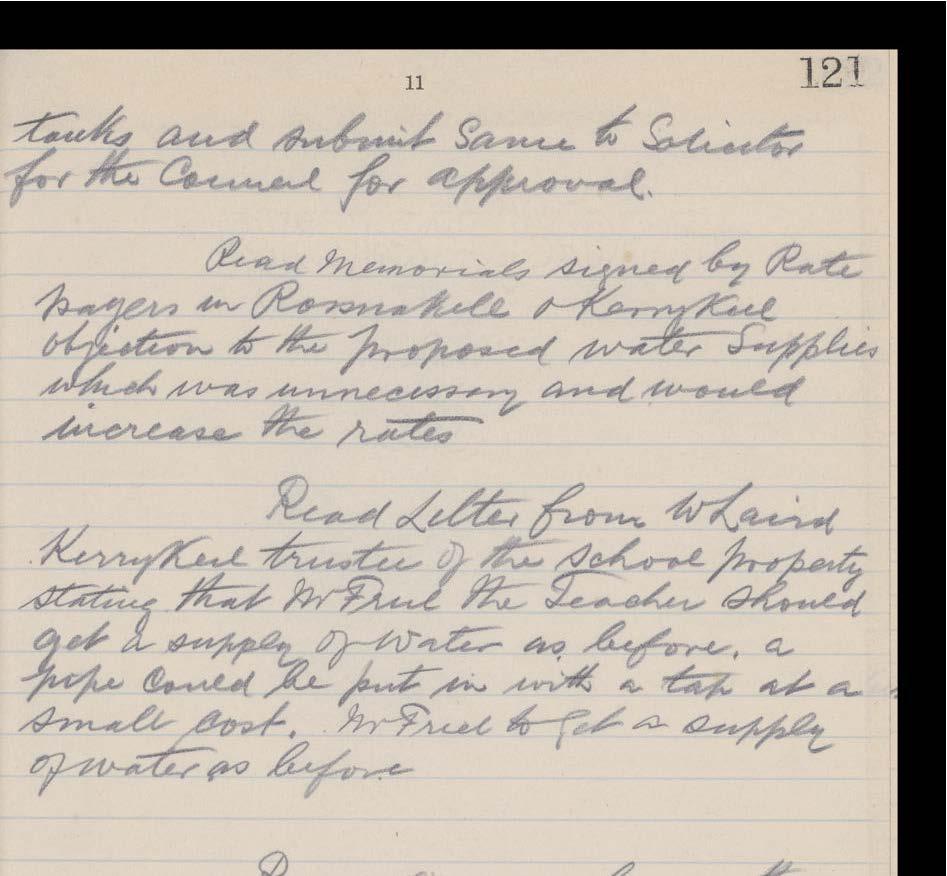 11
121
tanks and submit Same to Solicitor
for the Council for approval.
Read Memorials signed by Rate
payers in Rossnakill & Kerrykeel
objection to the proposed water Supplies
which was unnecessary and would
increase the rates
Read Letter from W Laird
Kerrykeel trustee of the School property
stating that Mr Friel the Teacher should
get a supply of water as before. a
pipe could be put in with a tap at a
small cost. Mr Friel to get a supply
of water as before